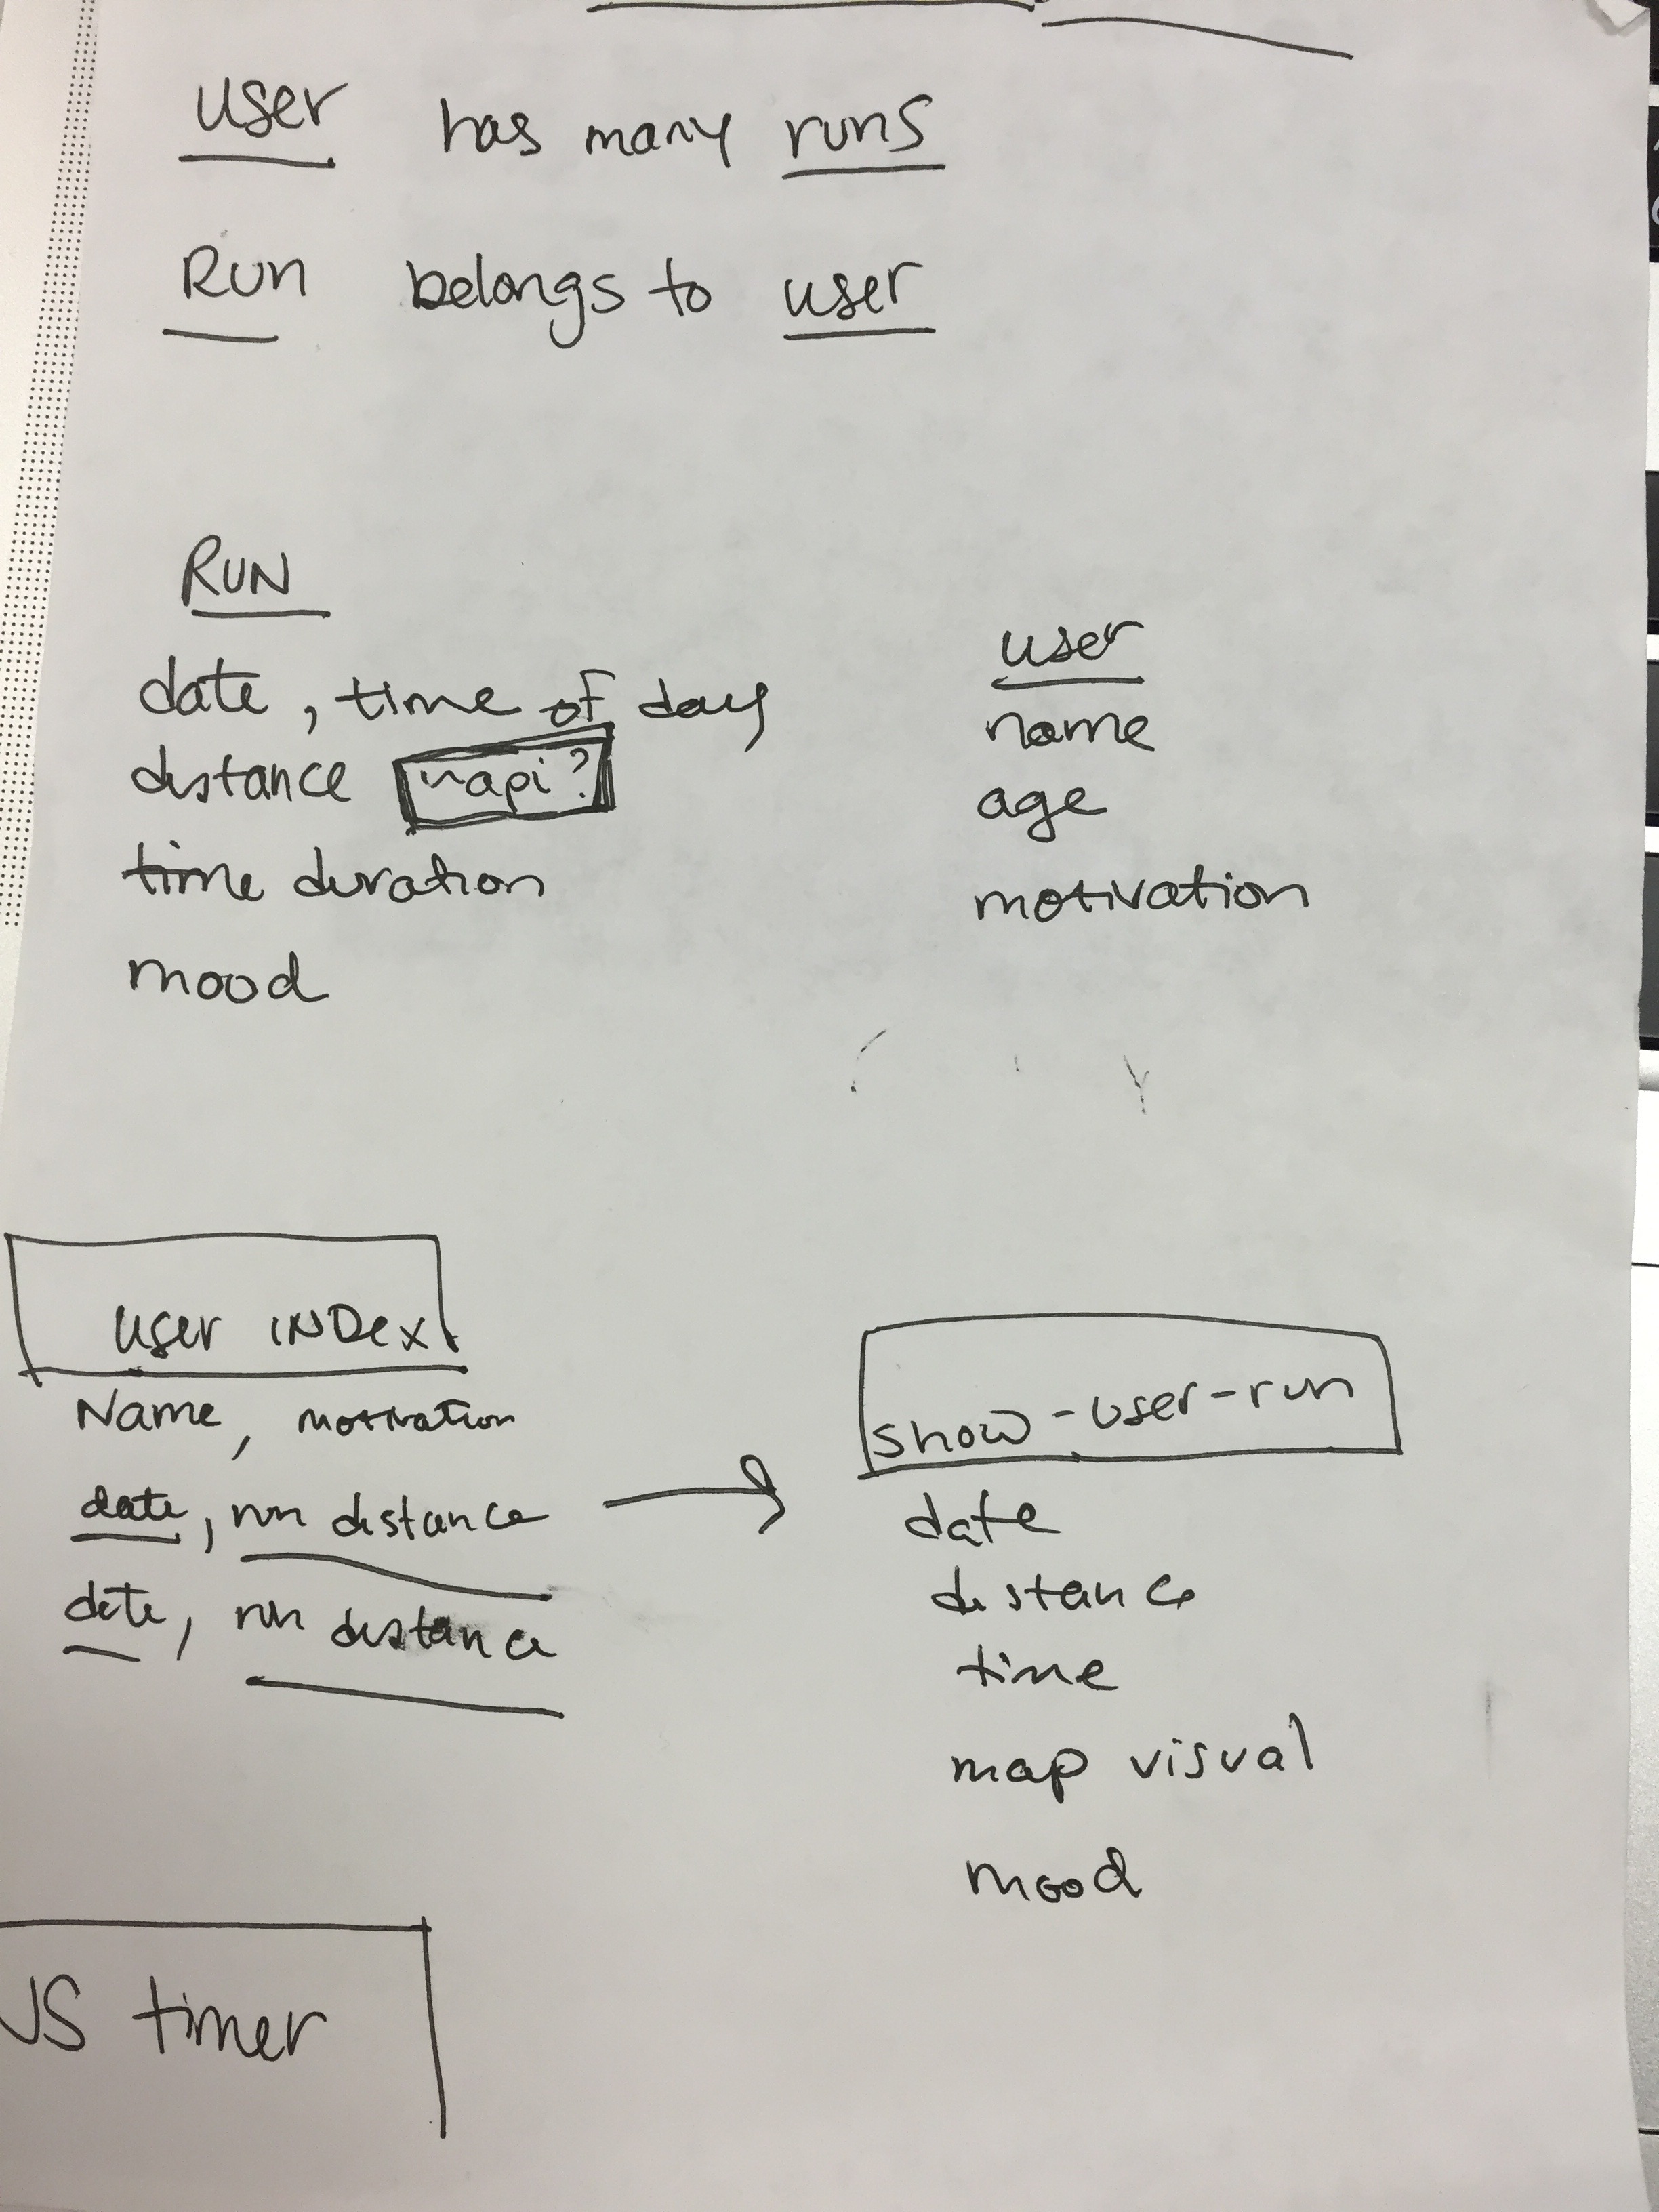 user has many runs
Run belongs to user
RUN
date, time of day
distance api?
time duration
mood
user
name
age
motivation
user INDex
Name, motivation
date, run distance
date, run distance
show-user-run
date
distance
time
map visual
mood
JS timer